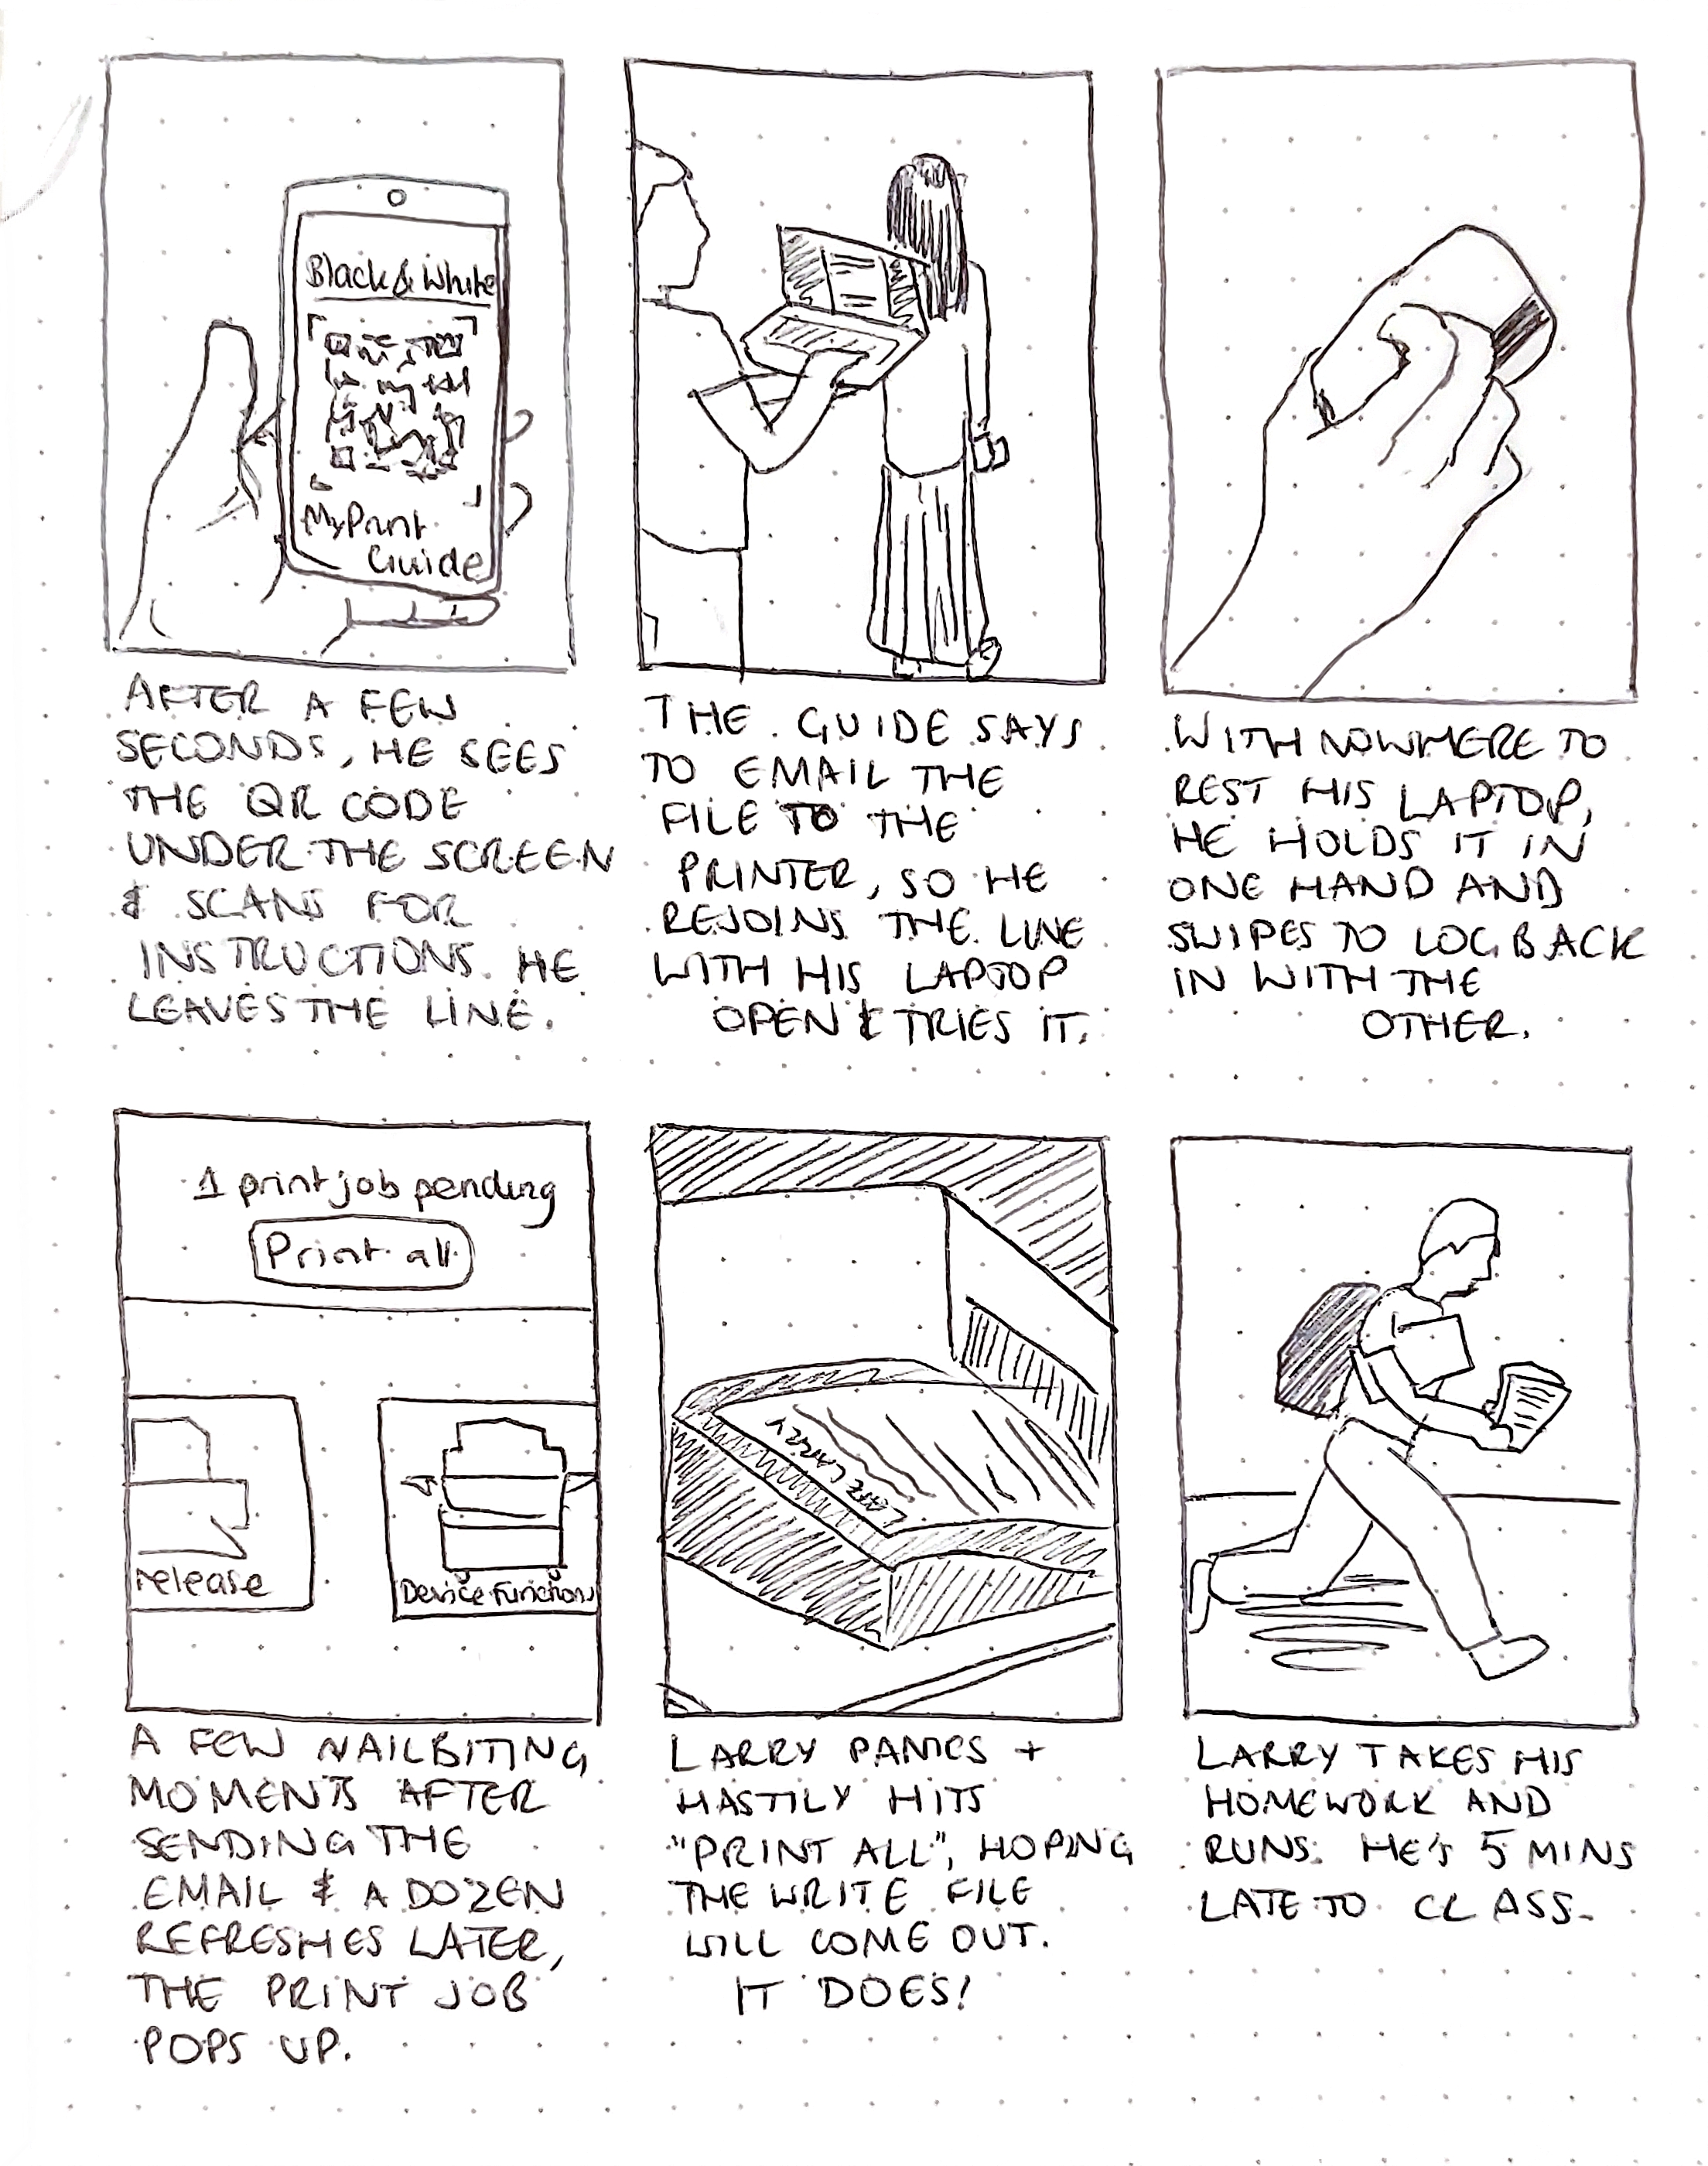 Black & White
MyPrint
Guide
AFTER A FEW
SECONDS, HE SEES
THE QR CODE
UNDER THE SCREEN
& SCANS FOR
INSTRUCTIONS. HE
LEAVES THE LINE.
THE GUIDE SAYS
TO EMAIL THE
FILE TO THE
PRINTER, SO HE
REJOINS THE LINE
WITH HIS LAPTOP
OPEN & TRIES IT.
WITH NOWHERE TO
REST HIS LAPTOP,
HE HOLDS IT IN
ONE HAND AND
SWIPES TO LOG BACK
IN WITH THE
OTHER.
1 print job pending
Print all
release
Device Functions
A FEW NAILBITING
MOMENTS AFTER
SENDING THE
EMAIL & A DOZEN
REFRESHES LATER,
THE PRINT JOB
POPS UP.
LATE LARRY
LARRY PANICS +
HASTILY HITS
"PRINT ALL", HOPING
THE WRITE FILE
WILL COME OUT.
IT DOES!
LARRY TAKES HIS
HOMEWORK AND
RUNS. HE'S 5 MINS
LATE TO CLASS.